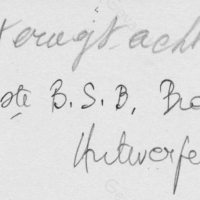 terugt acht
ste B.S.B, Bro
Antwerpe